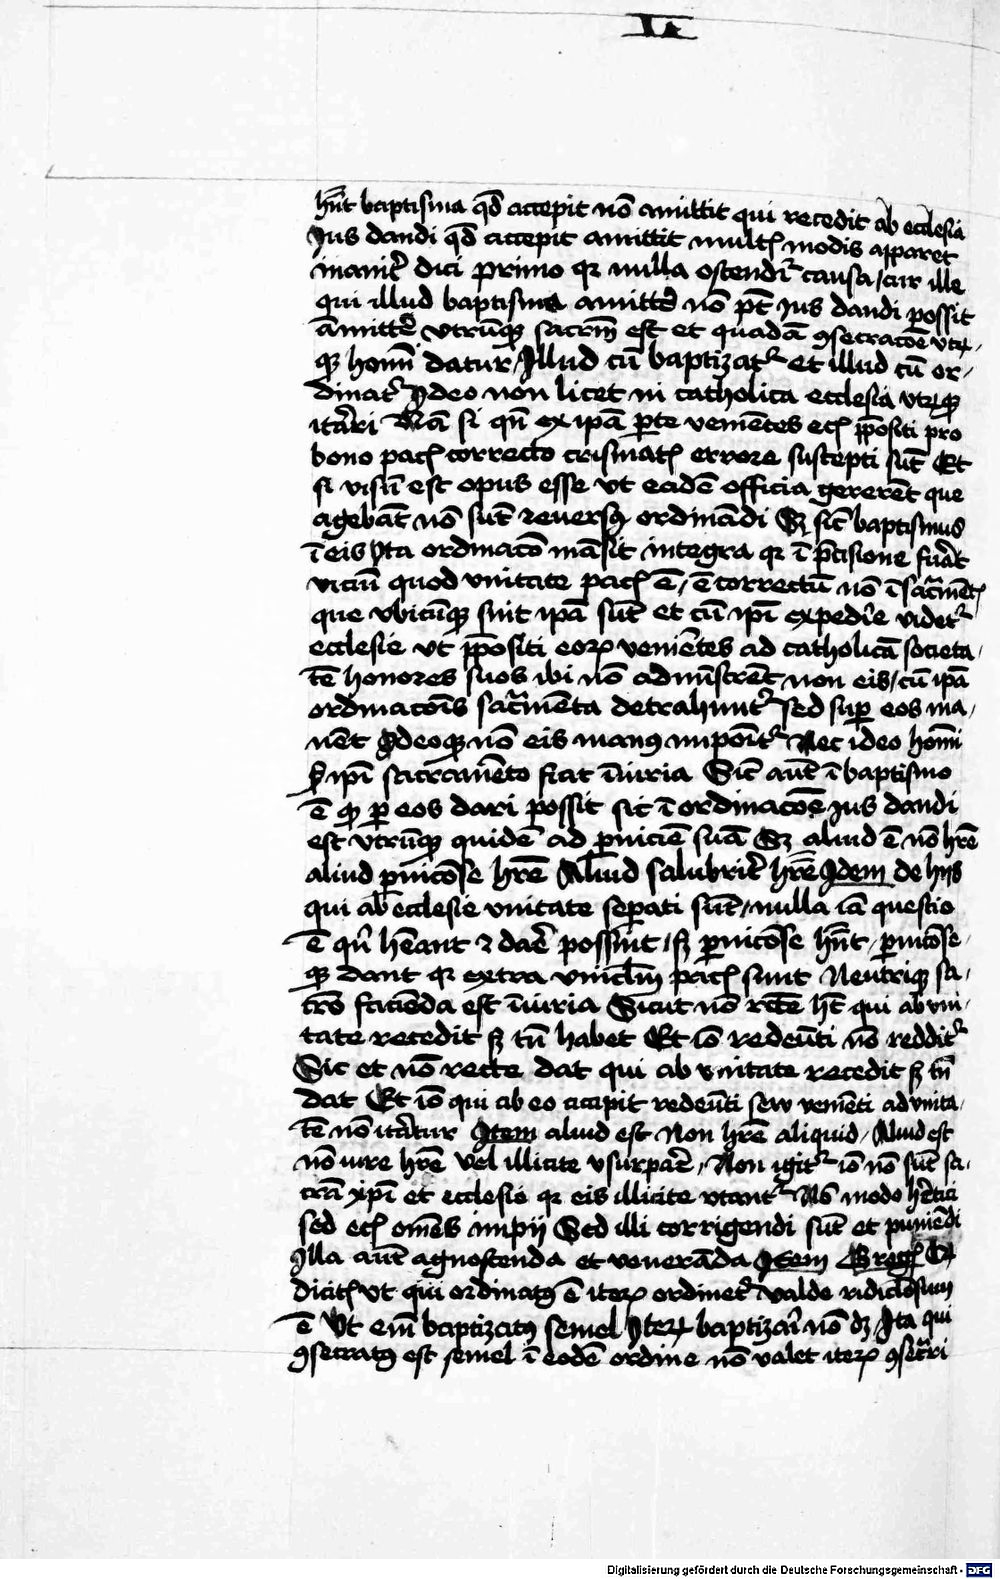 hn̄t baptisma qd̄ accepit nō amittit qui recedit ab ecclesia
Jus dandi qd̄ accepit amittit mult modis apparet
inanit᷑ dici primo qr nulla ostendit᷑ causa / cur ille
qui illud baptisma amitt'e nō pt̄ Jus dandi possit
amitt'e vtrūqꝫ sacrm̄ est et quadā ꝯsecracōe vtrū-
qꝫ homī datur / Illud cū baptizat᷑ et illud cū or-
dinat᷑ Ideo non licet in catholica ecclesia vtrūqꝫ
itārari Nā si qn̄ ex ipā pte venientes ecī ppositi pro
bono pacꝭ correcto crismatꝭ errore suscepti sūt Et
si visū est opus esse vt eadē officia gererēt que
agebāt nō sūt reversꝯ ordinādi Sꝫ sic̄ baptismus
ī eis yta ordinacō māsit integra qr ī p̄cisione fuāt
viciū quod vnitate pacꝭ ē / ē correctū nō ī sac̄mētꝭ
que vbicūqꝫ sint ipā sūt et cū ipī expedire videt᷑
ecclesie vt ppositi eorꝝ venietes ad catholicā societa-
tē honores suos ibi nō adminstrēt non eis / cū ipā
ordinacōis sac̄menta detrahunt᷑ sed sup eos ma-
nēt Ideoqꝫ nō eis manꝯ imponit᷑ Nec ideo homī
sꝫ ipī sacramēto fiat īiuria Sic̄ aūt ī baptismo
ē qꝫ p eos dari possit sic ī ordinacōe Jus dandi
est vtrūqꝫ quidē ad pniciē suā Sꝫ aliud ē nō hr̄e
aliud pnicōse hr̄e Aliud salubrit᷑ hr̄e Idem de hijs
qui ab ecclesie vnitate sepati sūt / nulla iā questio
ē qn̄ hēant ⁊ dar̄e possint / sꝫ pnicōse hn̄t / pnicōse-
qꝫ dant qr extra vinclm̄ pacꝭ sunt Neutriqꝫ sa-
cr̄o facienda est īiuria Sicut nō recte ht̄ qui ab vni-
tate recedit sꝫ tn̄ habet Et iō redeūti nō reddit᷑
Sic et nō recte dat qui ab vnitate recedit sꝫ tn̄
dat Et iō qui ab eo accipit redeūti sew venieti ad vnita-
tē nō itāratur Item aliud est Non hr̄e aliquid / Aliud est
nō iure hr̄e vel illicite vsurpar̄e / Non igit᷑ iō nō sūt sa-
crā xpī et ecclesie qr eis illicite vtant᷑ Nō modo hētici
sed ecī omēs impij Sed illi corrigendi sūt et puniēdi
Illa aūt agnoscenda et venerāda Item Greg
dicitꝭ vt qui ordinatꝯ ē iterꝝ ordinet᷑ valde ridiclōsum
ē Vt em̄ baptizatꝯ semel iterꝝ baptizari nō dꝫ / Ita qui
ꝯsecratꝯ est semel ī eodē ordine nō valet iterꝝ ꝯsecrari
Digitalisierung gefördert durch die Deutsche Forschungsgemeinschaft - DFG